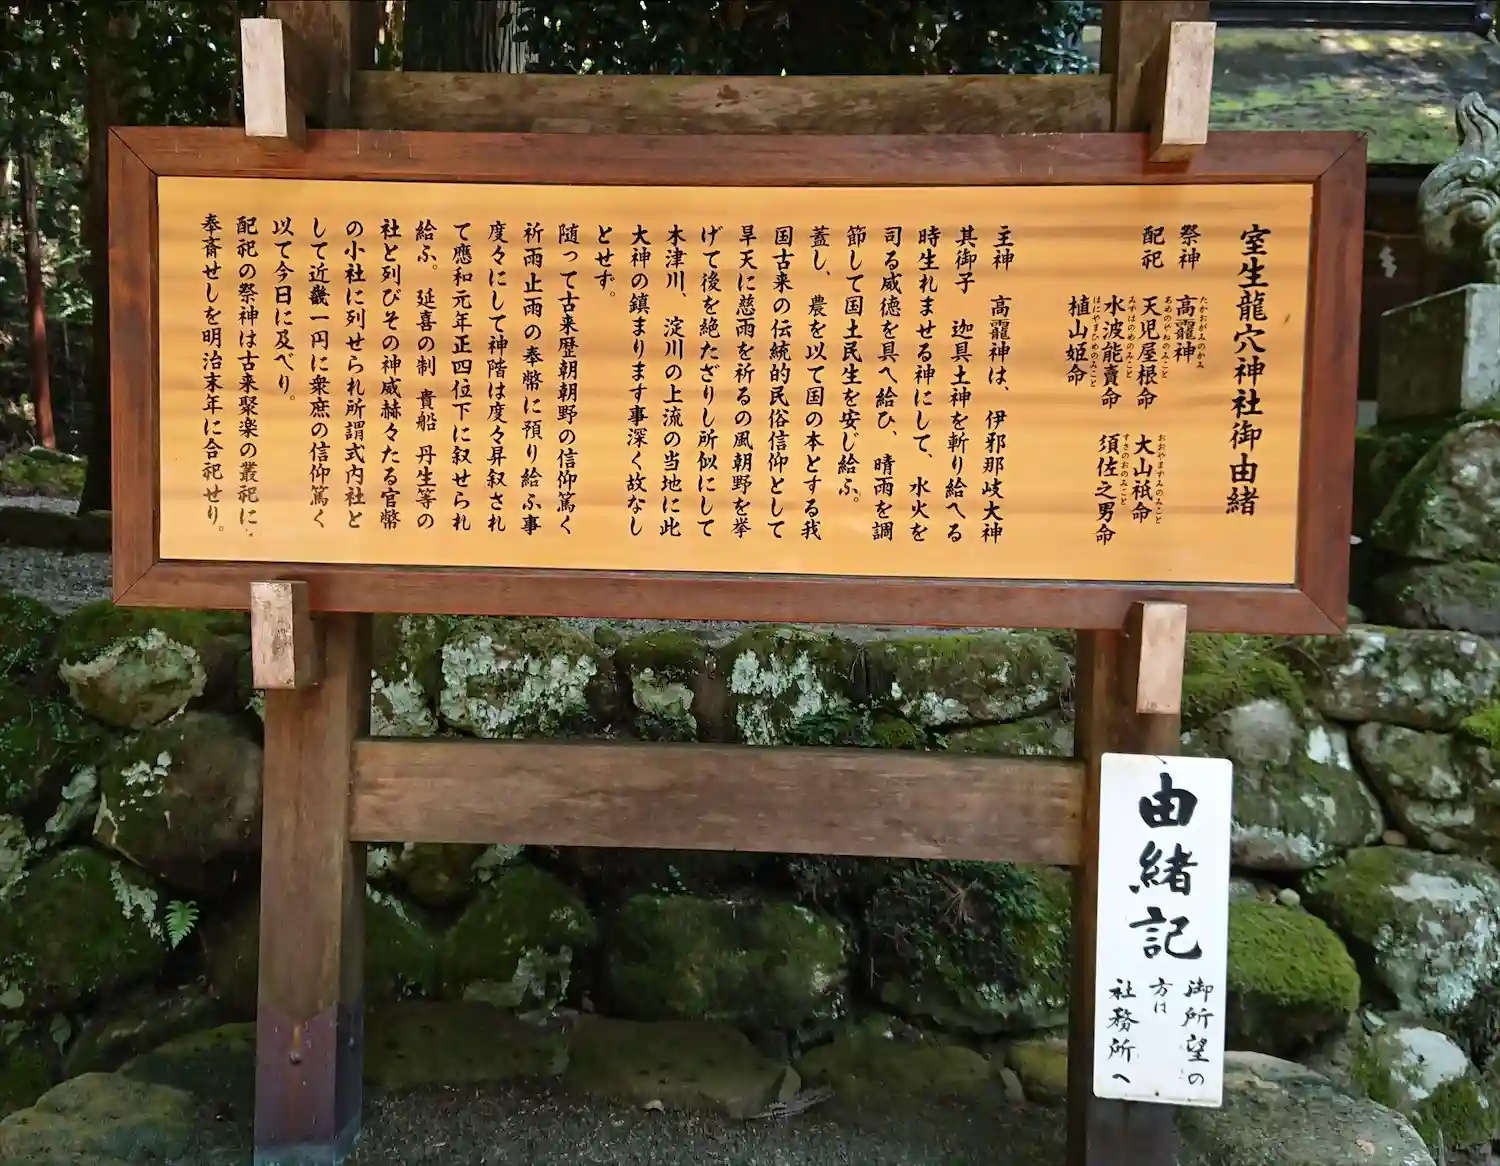 室生龍穴神社御由緒
祭神　高龗神　大山祇命
たかおがみのかみ　おおやまずみのみこと
配祀　天児屋根命　須佐之男命
あめのやねのみこと　すさのおのみこと
水波能賣命
みずはのめのみこと
植山姫命
はにやまひめのみこと
主神　高龗神は、伊邪那岐大神
其御子　迦具土神を斬り給へる
時生れませる神にして、水火を
司る威徳を具へ給ひ、晴雨を調
節して国土民生を安じ給ふ。
蓋し、農を以て国の本とする我
国古来の伝統的民俗信仰として
旱天に慈雨を祈るの風朝野を挙
げて後を絶たざりし所似にして
木津川、淀川の上流の当地に此
大神の鎮まります事深く故なし
とせず。
随って古来歴朝朝野の信仰篤く
祈雨止雨の奉幣に預り給ふ事
度々にして神階は度々昇叙され
て應和元年正四位下に叙せられ
給ふ。延喜の制　貴船　丹生等の
社と列びその神威赫々たる官幣
の小社に列せられ所謂式内社と
して近畿一円に衆庶の信仰篤く
以て今日に及べり。
配祀の祭神は古来聚楽の叢祀に
奉斎せしを明治末年に合祀せり。
由緒記
御所望の
方は
社務所へ